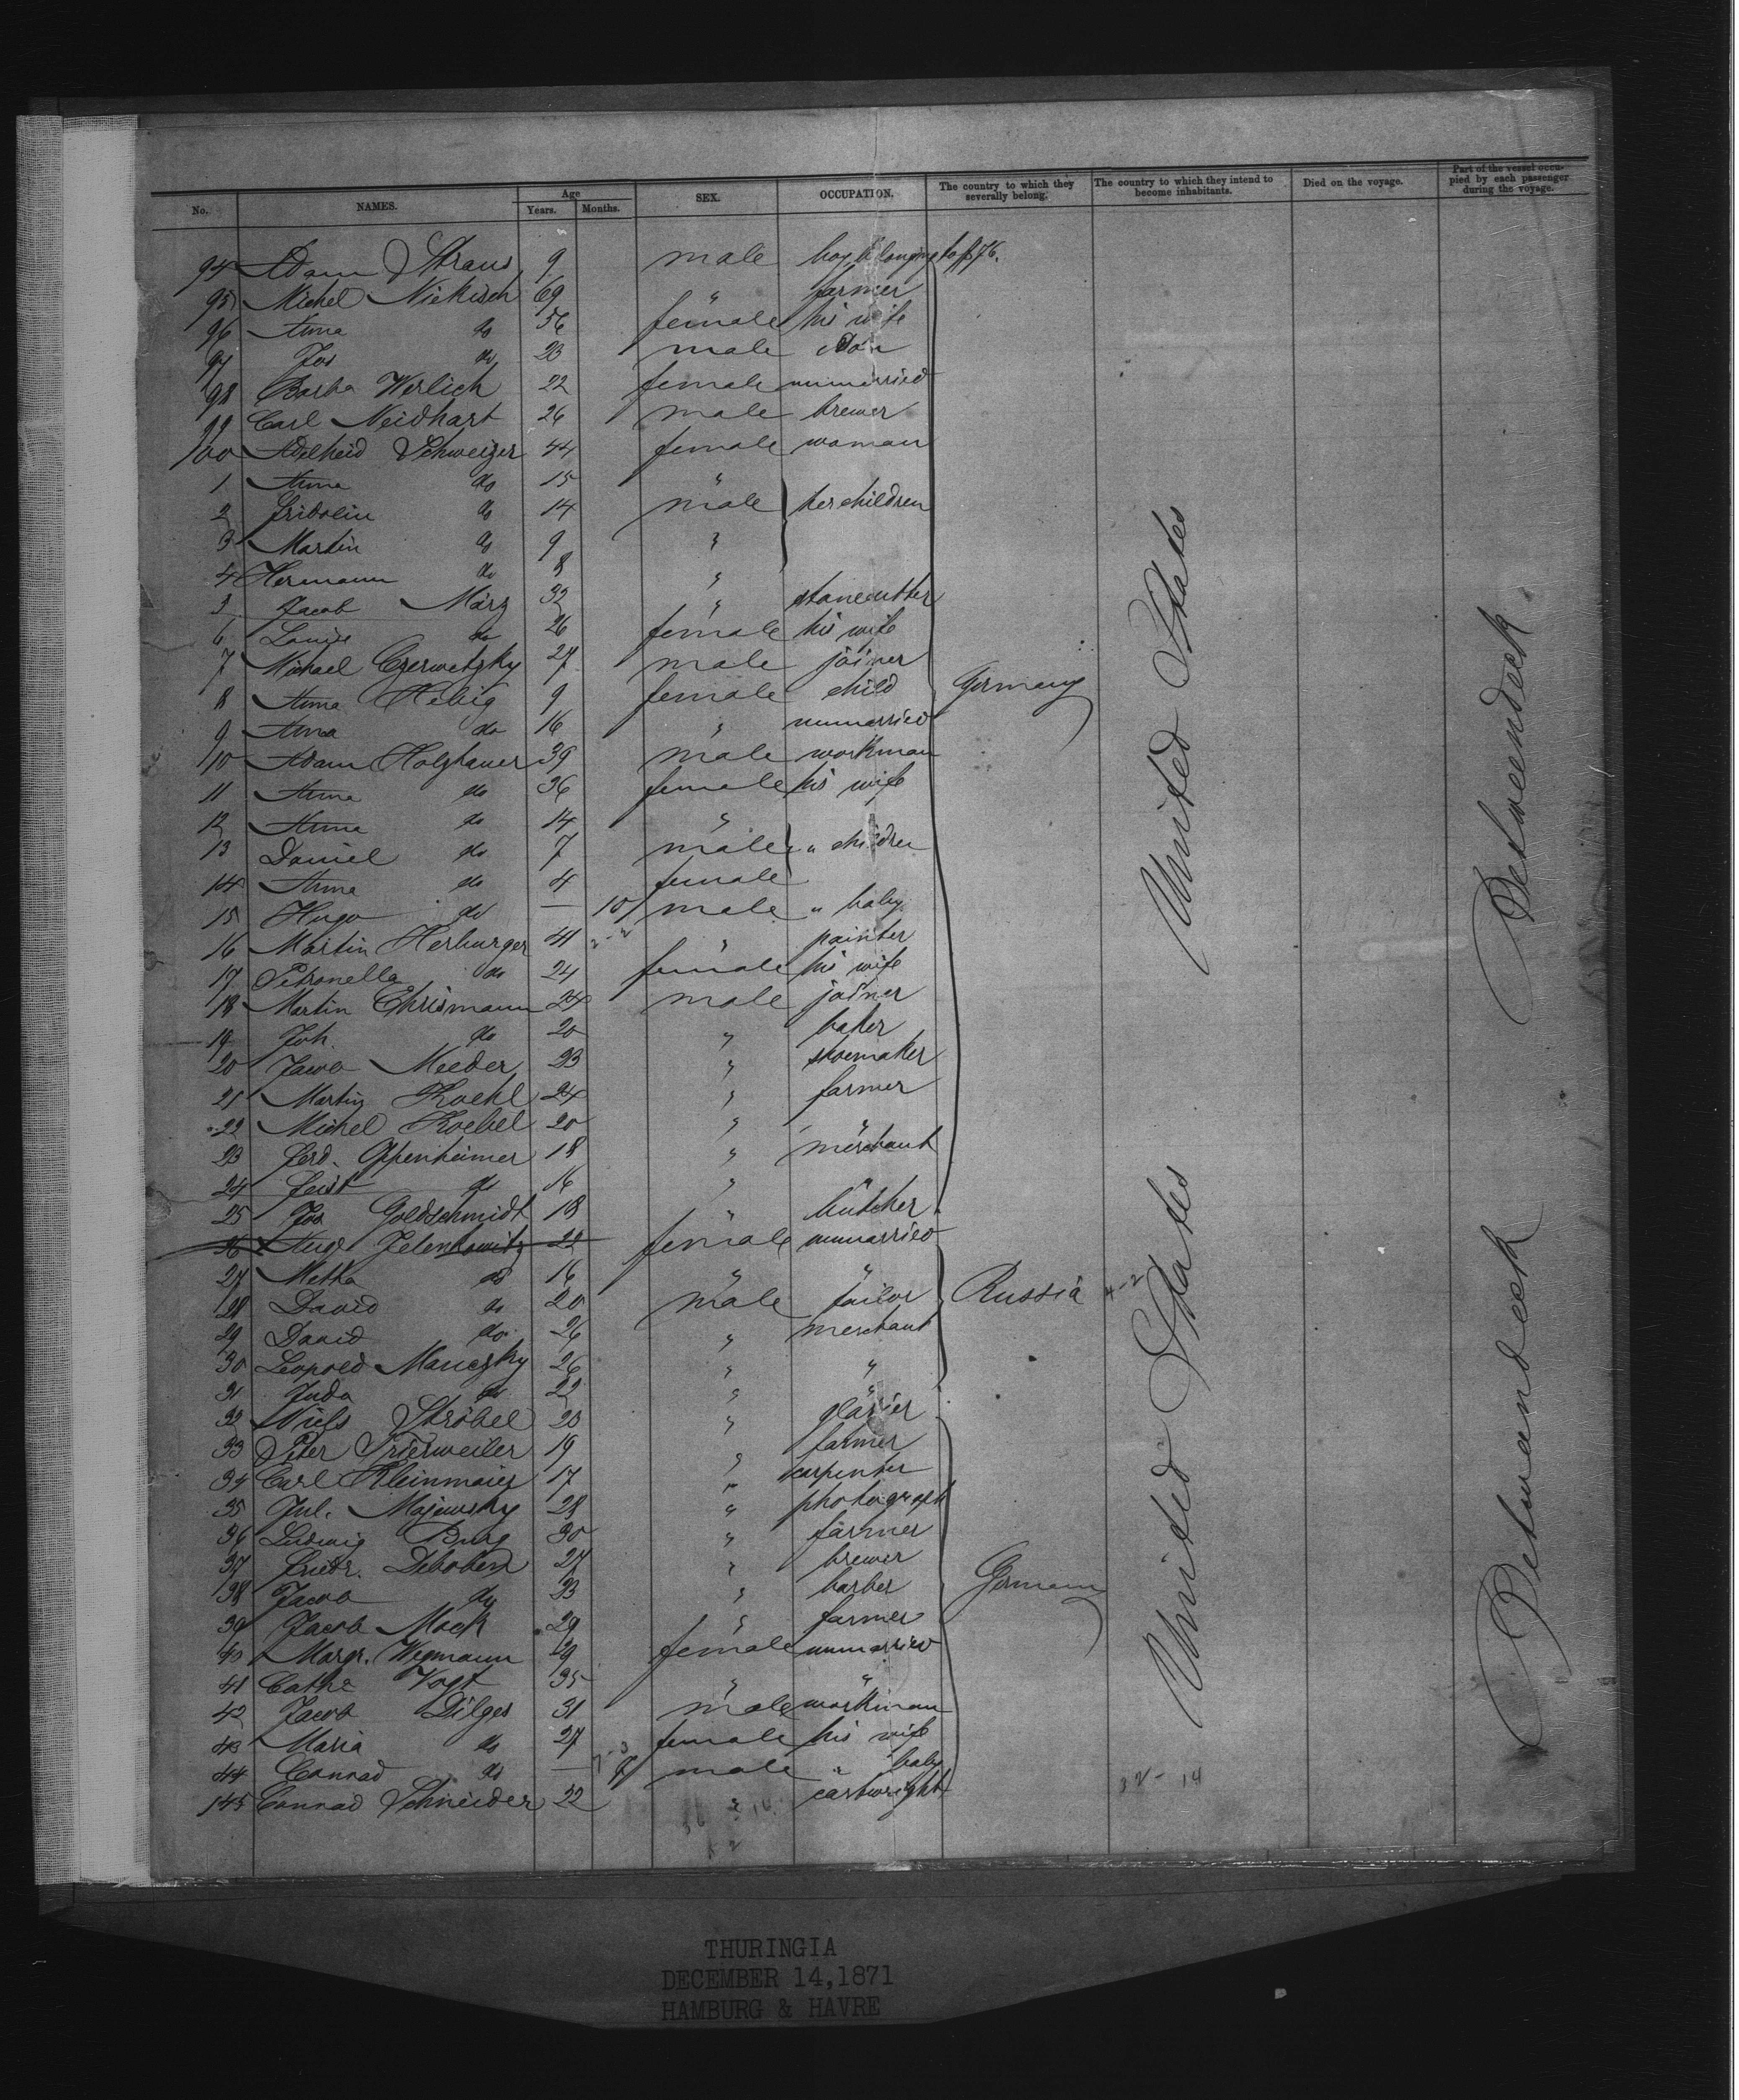 No. NAMES. Age Years. Months. SEX. OCCUPATION. The country to which they severally belong. The country to which they intend to become inhabitants. Died on the voyage. Part of the vessel occupied by each passenger during the voyage.
94 Adam Straus 9 male boy belonging to p 76.
95 Michel Niekisch 69 " farmer
96 Anna do 56 female his wife
97 Jos do 23 male son
98 Barba Werlich 22 female unmarried
99 Carl Neidhart 26 male brewer
100 Adelheid Schweizer 44 female woman
1 Anna do 15 "
2 Fridolin do 14 male her children
3 Martin do 9 "
4 Hermann do 8 "
5 Jacob März 32 " stonecutter
6 Louise do 26 female his wife
7 Michael Czerwetzky 27 male joiner
8 Anna Helbig 9 female child Germany
9 Anna do 16 " unmarried
110 Adam Holzhauer 39 male workman
11 Anna do 36 female his wife
12 Anna do 14 "
13 Daniel do 7 male " children
14 Anna do 4 female
15 Hugo do — 10 male " baby
16 Martin Herburger 41 " painter
17 Petronella do 24 female his wife
18 Martin Chrismann 24 male joiner
19 Joh. do 20 " baker
20 Jacob Meeder 23 " shoemaker
21 Martin Koehl 24 " farmer
22 Michel Koebel 20 " "
23 Ferd. Oppenheimer 18 " merchant
24 Feist do 16 " "
25 Jos Goldschmidt 18 " butcher
26 Aug. Jelenkowitz 22 female unmarried
27 Metha do 16 " "
128 David do 20 male tailor Russia 4-2
29 David do 26 " merchant
30 Leopold Manczky 26 " "
31 Juda do 22 " "
32 Niels Ströbel 23 " glazier
33 Peter Trierweiler 19 " farmer
34 Carl Kleinmaier 17 " carpenter
35 Jul. Majewsky 28 " photograph
36 Ludwig Burg 30 " farmer
37 Friedr. Deboben 27 " brewer
138 Jacob do 23 " barber Germany
39 Jacob Mack 29 " farmer
40 Margr. Wegmann 29 female unmarried
41 Catha Vogt 35 " "
42 Jacob Dilges 31 male workman
43 Maria do 27 female his wife
44 Conrad do — 8 male " baby
145 Conrad Schneider 22 " cartwright
United States
United States
Betweendeck
Betweendeck
32-14
THURINGIA
DECEMBER 14,1871
HAMBURG & HAVRE